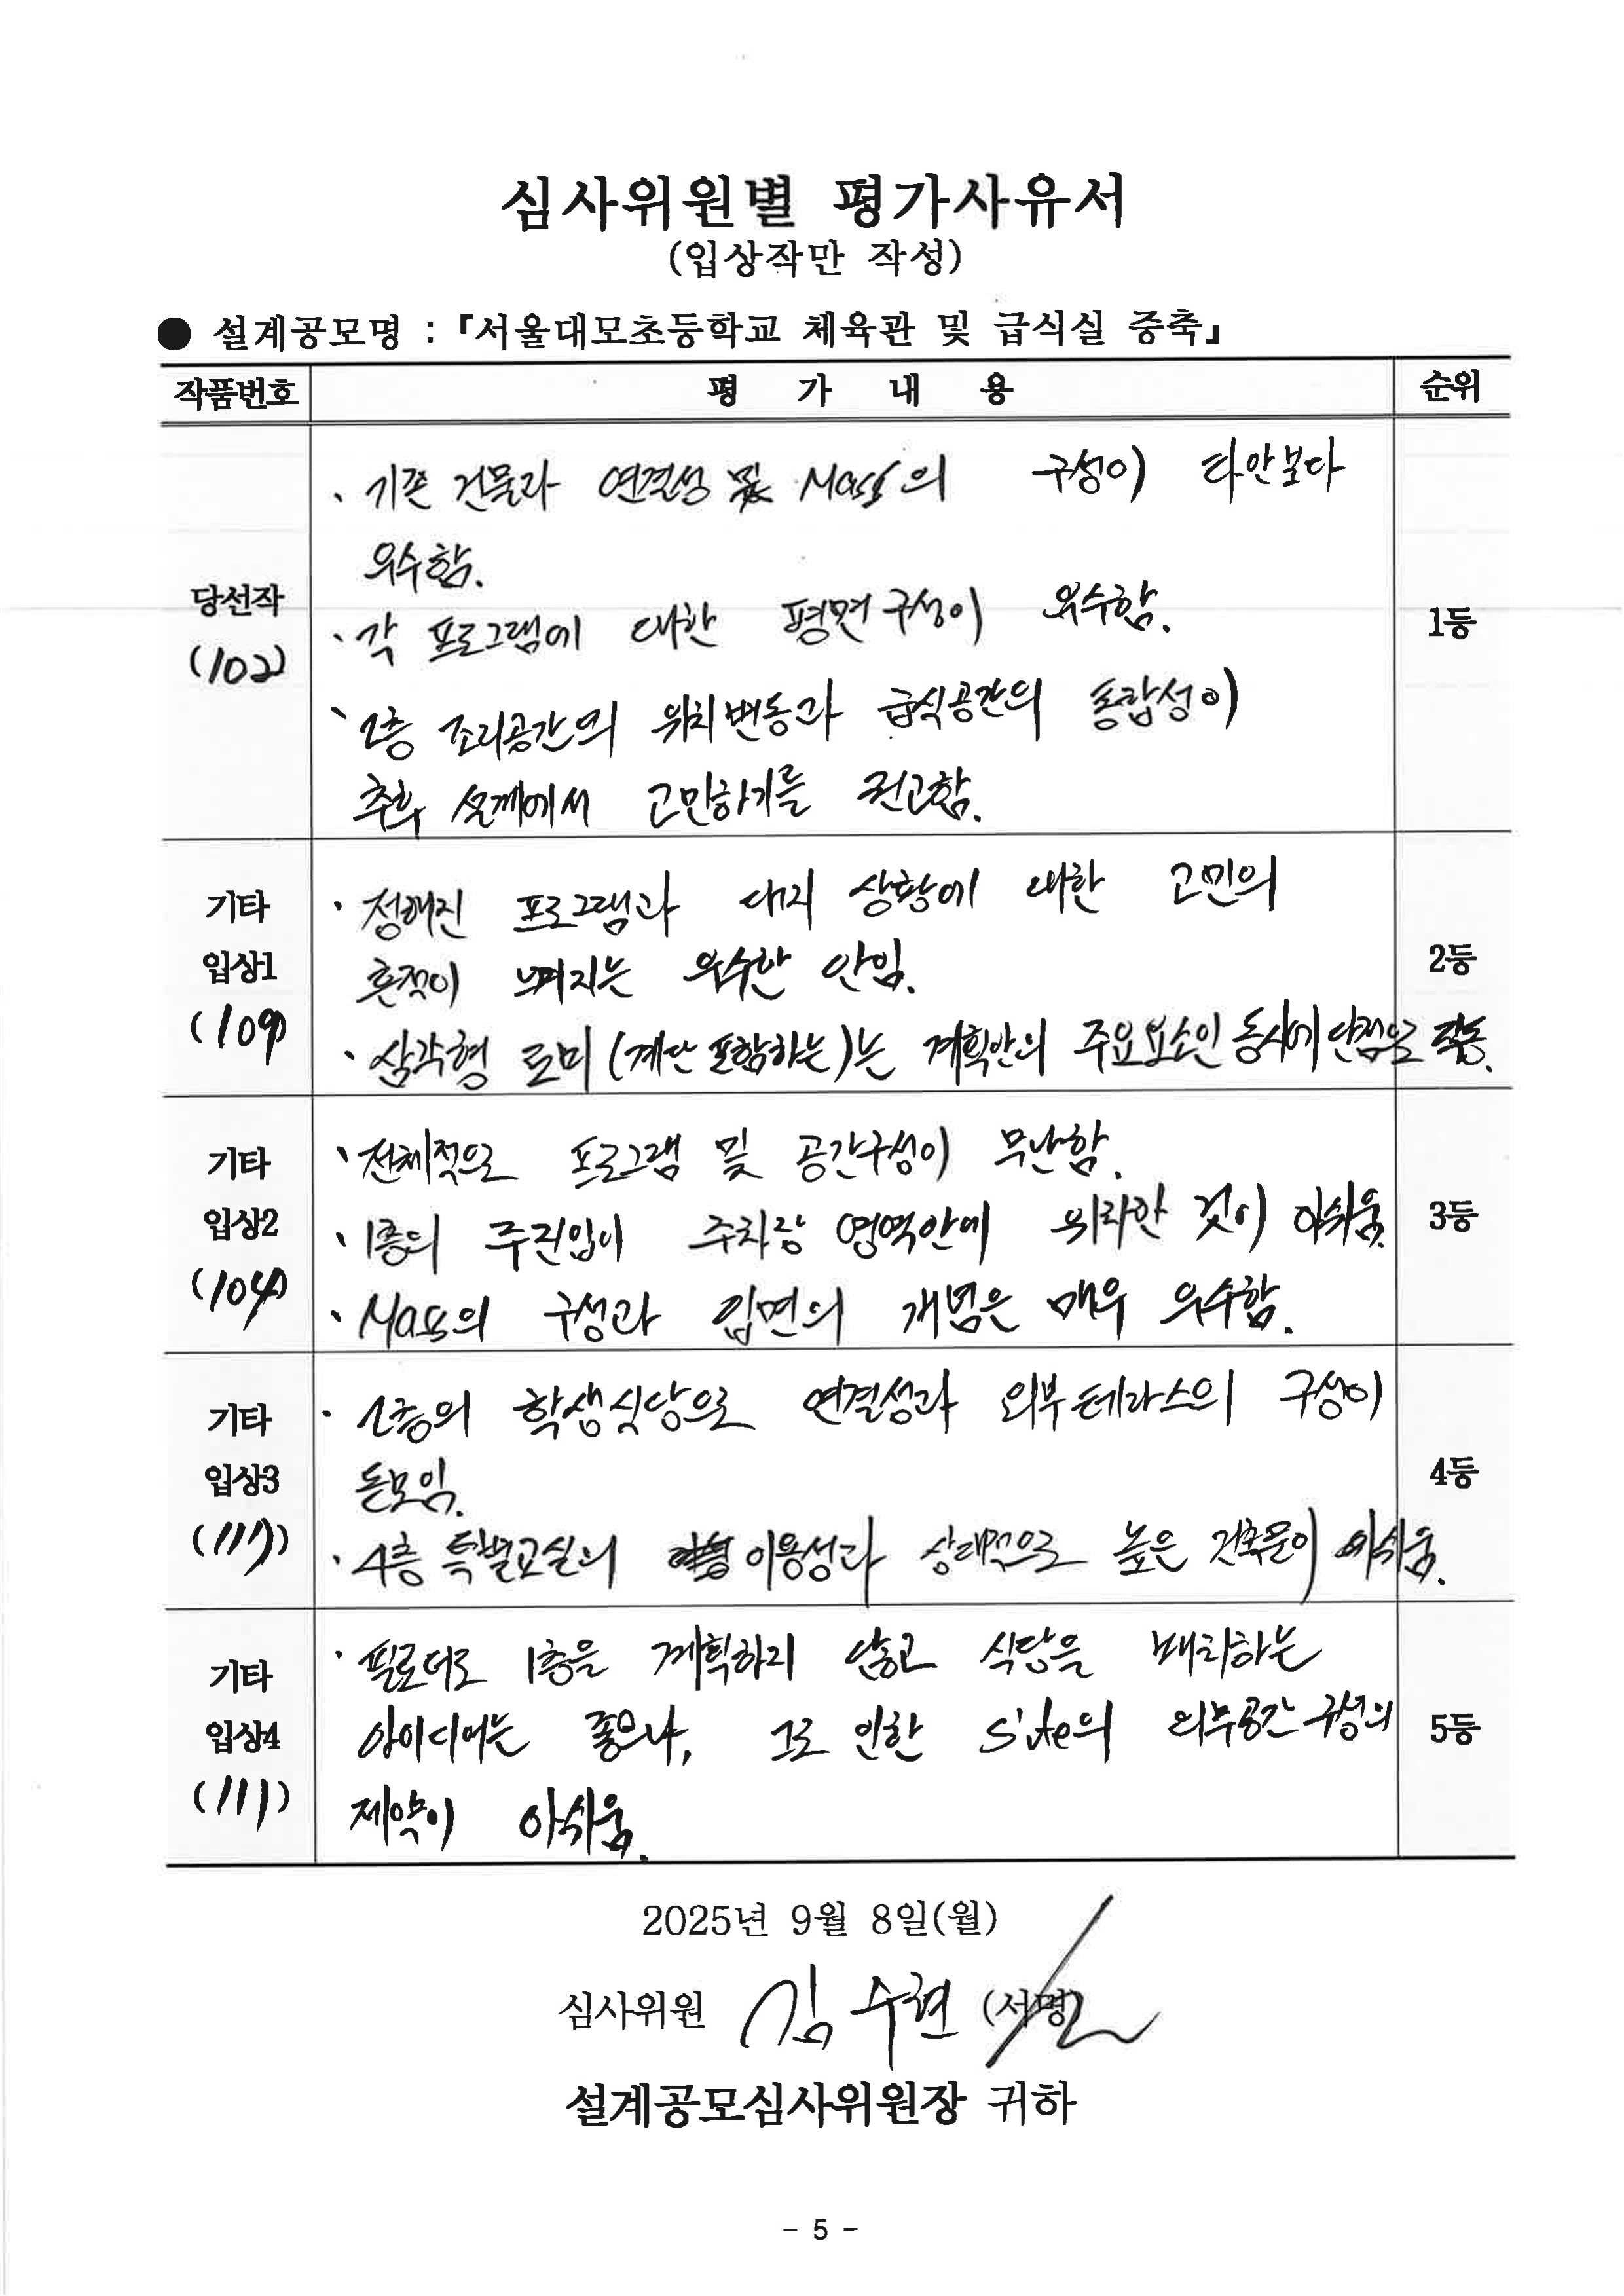 심사위원별 평가사유서
(입상작만 작성)
● 설계공모명 : 『서울대모초등학교 체육관 및 급식실 증축』
작품번호 평 가 내 용 순위
당선작
(102)
· 기존 건물과 연결성 및 Mass의 구성이 타안보다
우수함.
· 각 프로그램에 대한 평면구성이 우수함.
· 2층 조리공간의 위치변동과 급식공간의 통합성이
추후 설계에서 고민하기를 권고함.
1등
기타
입상1
(109)
· 정해진 프로그램과 대지 상황에 대한 고민의
흔적이 느껴지는 우수한 안임.
· 삼각형 로비 (계단 포함하는)는 계획안의 주요요소인 동시에 단점으로 작동.
2등
기타
입상2
(104)
· 전체적으로 프로그램 및 공간구성이 무난함.
· 1층의 주진입이 주차장 영역안에 위치한 것이 아쉬움.
· Mass의 구성과 입면의 개념은 매우 우수함.
3등
기타
입상3
(117)
· 2층의 학생식당으로 연결성과 외부테라스의 구성이
돋보임.
· 4층 특별교실의 이용성과 상대적으로 높은 건축물이 아쉬움.
4등
기타
입상4
(111)
· 필로티로 1층을 계획하지 않고 식당을 배치하는
아이디어는 좋으나, 그로 인한 Site의 외부공간 구성의
제약이 아쉬움.
5등
2025년 9월 8일(월)
심사위원 김수현 (서명)
설계공모심사위원장 귀하
- 5 -